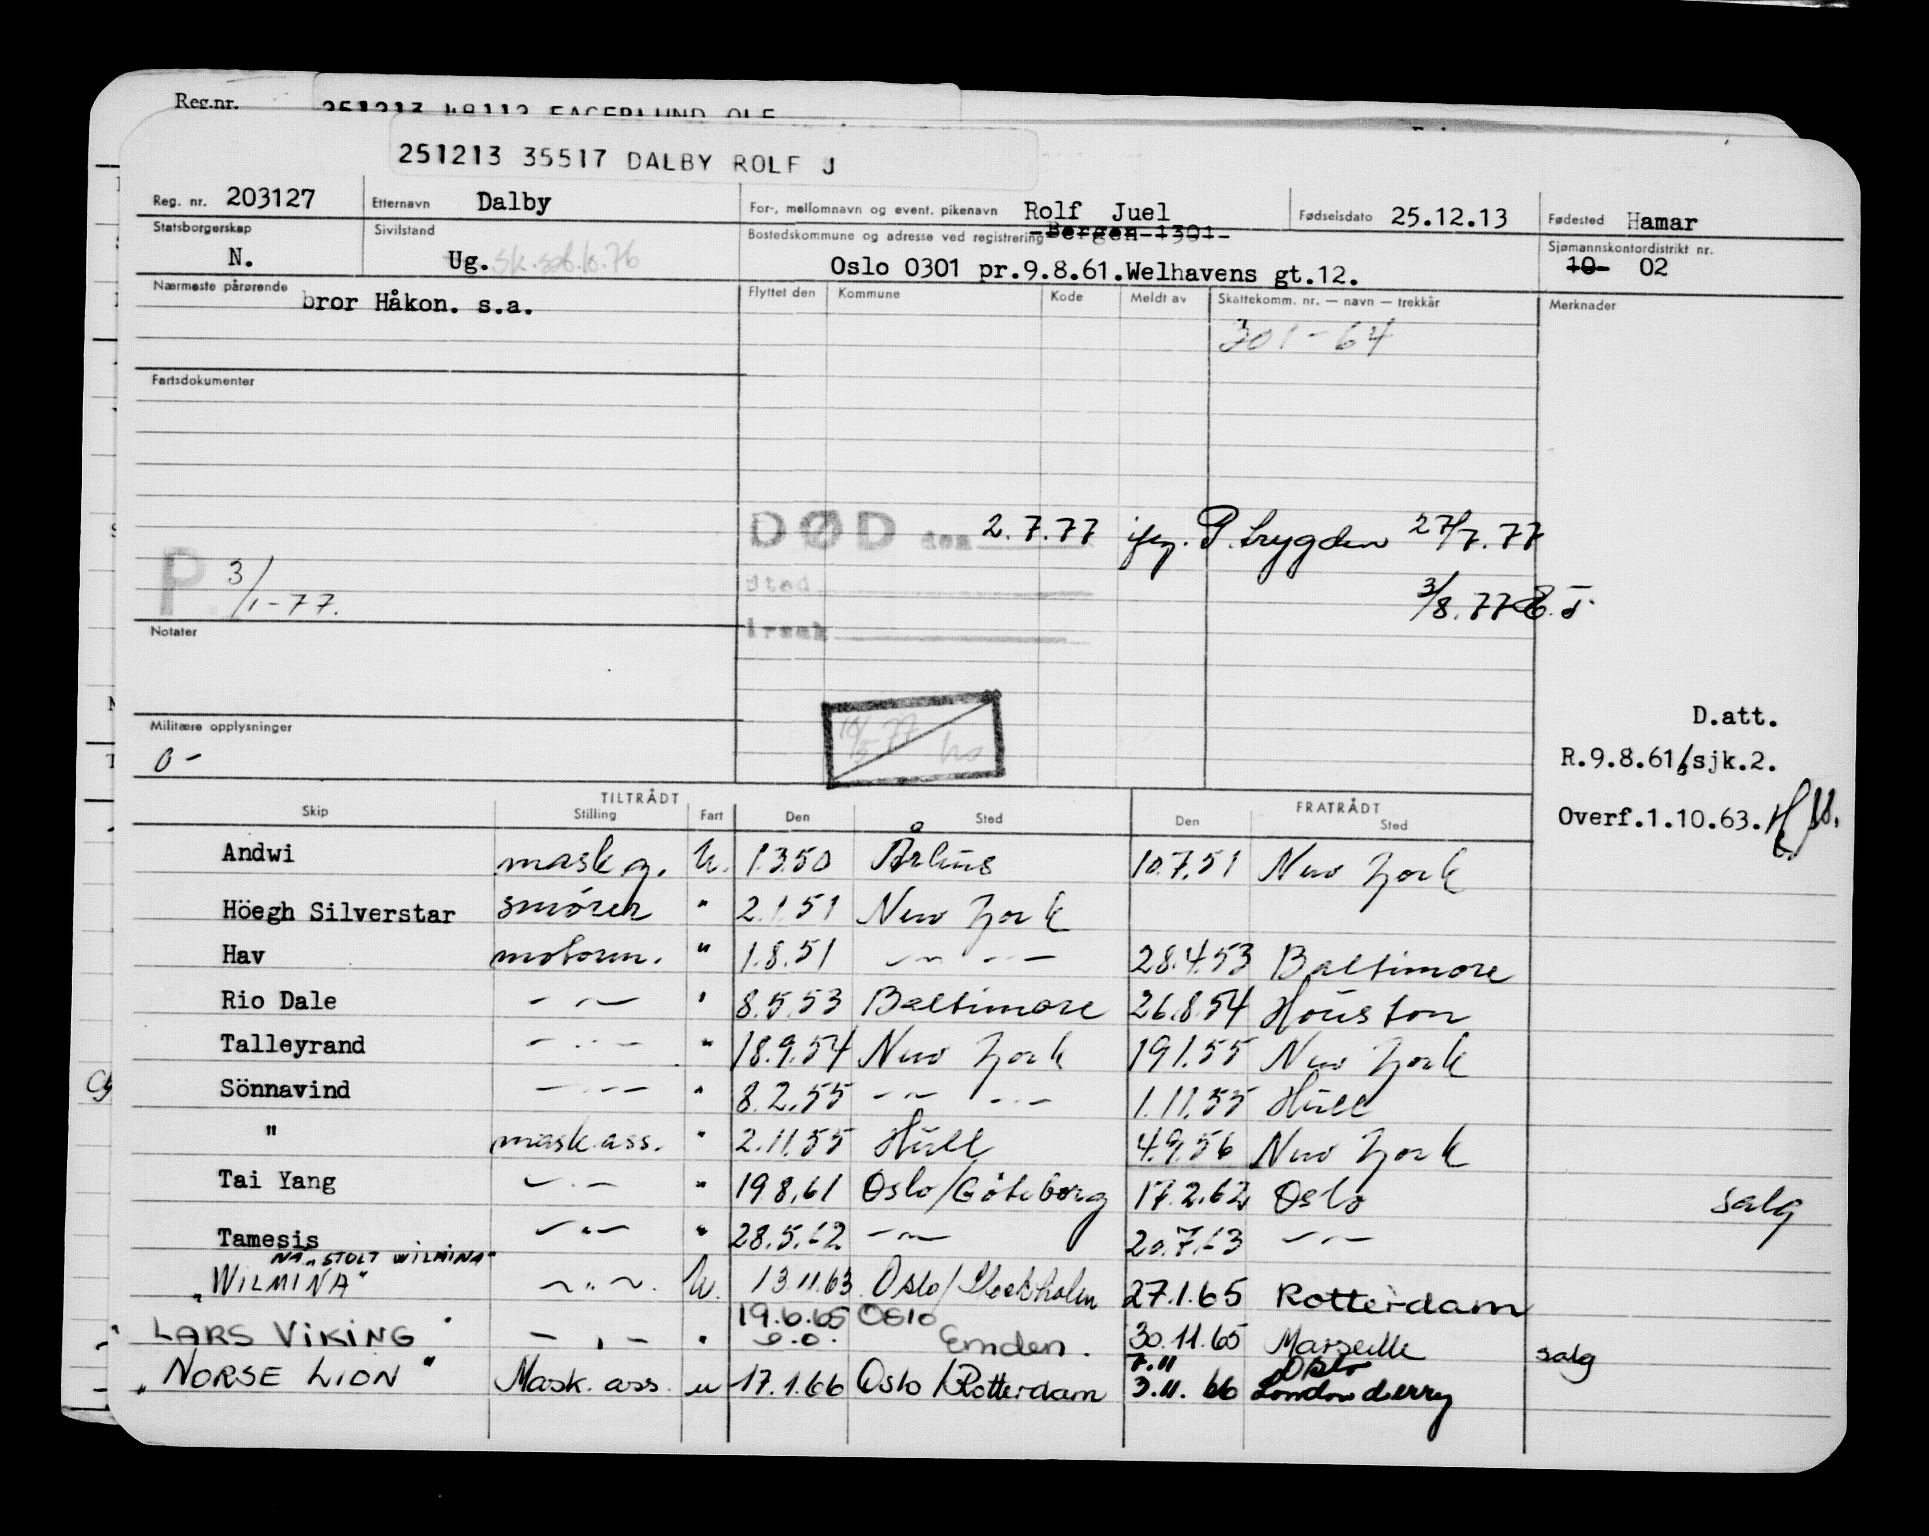 Reg.nr. 251213 48112 FAGERLUND OLE
251213 35517 DALBY ROLF J
Reg. nr. 203127 Etternavn Dalby For-, mellomnavn og event. pikenavn Rolf Juel Fødselsdato 25.12.13 Fødested Hamar
Statsborgerskap N. Sivilstand Ug. Bostedskommune og adresse ved registrering Bergen 1301 Sjømannskontordistrikt nr. 10 02
Oslo 0301 pr.9.8.61.Welhavens gt.12.
Nærmeste pårørende bror Håkon. s.a. Flyttet den Kommune Kode Meldt av Skattekomm. nr. — navn — trekkår Merknader
301-64
Fartsdokumenter
DØD den 2.7.77 27/7.77
P. 3/1-77.
Sted
3/8.77
Årsak
Notater
Militære opplysninger
0-
D.att.
R.9.8.61/sjk.2.
Overf.1.10.63.
TILTRÅDT FRATRÅDT
Skip Stilling Fart Den Sted Den Sted
Andwi mask g. U. 1.3.50 Århus 10.7.51 New York
Höegh Silverstar smører " 2.1.51 New York
Hav motorm. " 1.8.51 — " — 28.4.53 Baltimore
Rio Dale — " — " 8.5.53 Baltimore 26.8.54 Houston
Talleyrand — " — " 18.9.54 New York 19.1.55 New York
Sönnavind — " — " 8.2.55 — " — 1.11.55 Hull
" mask.ass. " 2.11.55 Hull 4.9.56 New York
Tai Yang — " — " 19.8.61 Oslo/Göteborg 17.2.62 Oslo salg
Tamesis — " — " 28.5.62 — " — 20.7.63 — " —
NÅ "STOLT WILMINA"
"WILMINA" — " — U. 13.11.63 Oslo/Stockholm 27.1.65 Rotterdam
19.6.65 Oslo
LARS VIKING — " — " Emden. 30.11.65 Marseille salg
7.11 Oslo
"NORSE LION" Mask. ass. u 17.1.66 Oslo/Rotterdam 3.11.66 Londonderry